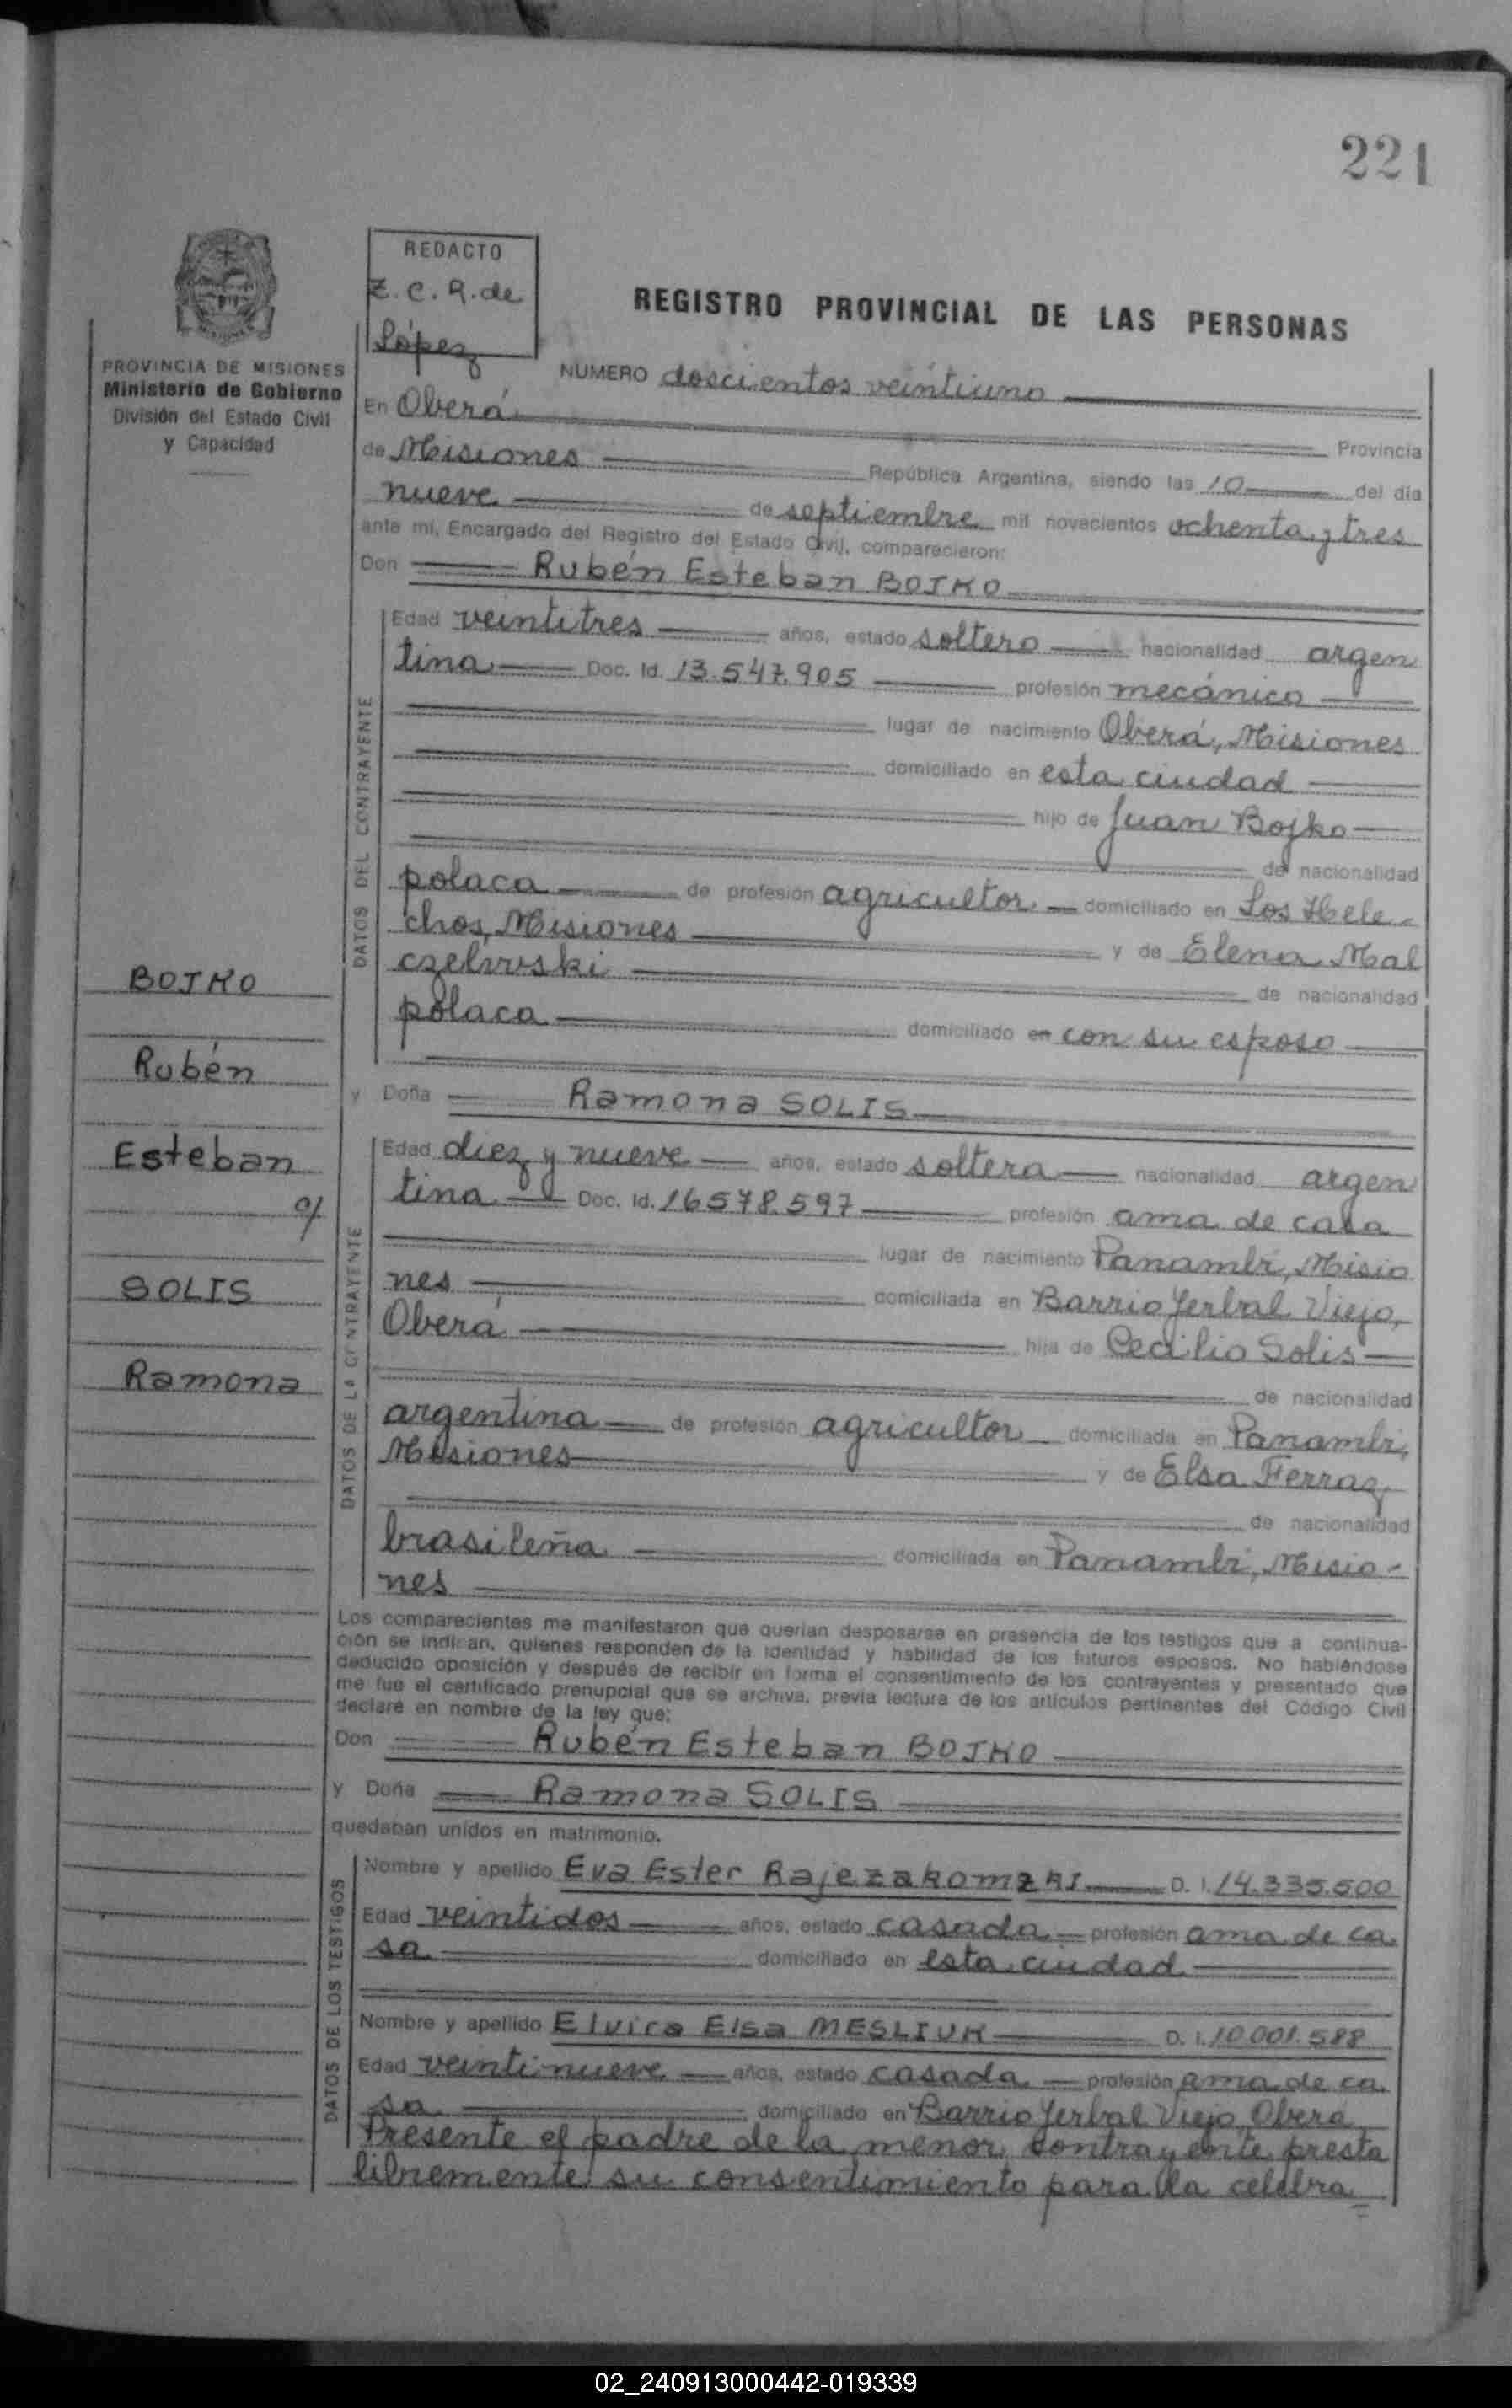 221
REDACTO
Z. C. R. de
López
REGISTRO PROVINCIAL DE LAS PERSONAS
PROVINCIA DE MISIONES
Ministerio de Gobierno
División del Estado Civil
y Capacidad
NUMERO doscientos veintiuno
En Oberá Provincia
de Misiones República Argentina, siendo las 10 del día
nueve de septiembre mil novecientos ochenta y tres
ante mí, Encargado del Registro del Estado Civil, comparecieron:
Don Rubén Esteban BOJKO
DATOS DEL CONTRAYENTE
Edad veintitres años, estado soltero nacionalidad argen
tina Doc. Id. 13.547.905 profesión mecánico
lugar de nacimiento Oberá, Misiones
domiciliado en esta ciudad
hijo de Juan Bojko
de nacionalidad
polaca de profesión agricultor domiciliado en Los Hele-
chos, Misiones y de Elena Mal
czelwski de nacionalidad
polaca domiciliado en con su esposo
BOJKO
Rubén
Esteban
c/
SOLIS
Ramona
y Doña Ramona SOLIS
DATOS DE LA CONTRAYENTE
Edad diez y nueve años, estado soltera nacionalidad argen
tina Doc. Id. 16578.597 profesión ama de casa
lugar de nacimiento Panambí, Misio
nes domiciliada en Barrio Yerbal Viejo,
Oberá hija de Cecilio Solis
de nacionalidad
argentina de profesión agricultor domiciliada en Panambí,
Misiones y de Elsa Ferraz
de nacionalidad
brasileña domiciliada en Panambí, Misio-
nes
Los comparecientes me manifestaron que querían desposarse en presencia de los testigos que a continua-
ción se indican, quienes responden de la identidad y habilidad de los futuros esposos. No habiéndose
deducido oposición y después de recibir en forma el consentimiento de los contrayentes y presentado que
me fue el certificado prenupcial que se archiva, previa lectura de los artículos pertinentes del Código Civil
declaré en nombre de la ley que:
Don Rubén Esteban BOJKO
y Doña Ramona SOLIS
quedaban unidos en matrimonio.
DATOS DE LOS TESTIGOS
Nombre y apellido Eva Ester Rajezakomzki D. I. 14.335.500
Edad veintidos años, estado casada profesión ama de ca
sa domiciliado en esta ciudad
Nombre y apellido Elvira Elsa MESLIUK D. I. 10.001.588
Edad veintinueve años, estado casada profesión ama de ca
sa domiciliado en Barrio Yerbal Viejo, Oberá
Presente el padre de la menor contrayente presta
libremente su consentimiento para la celebra
02_240913000442-019339